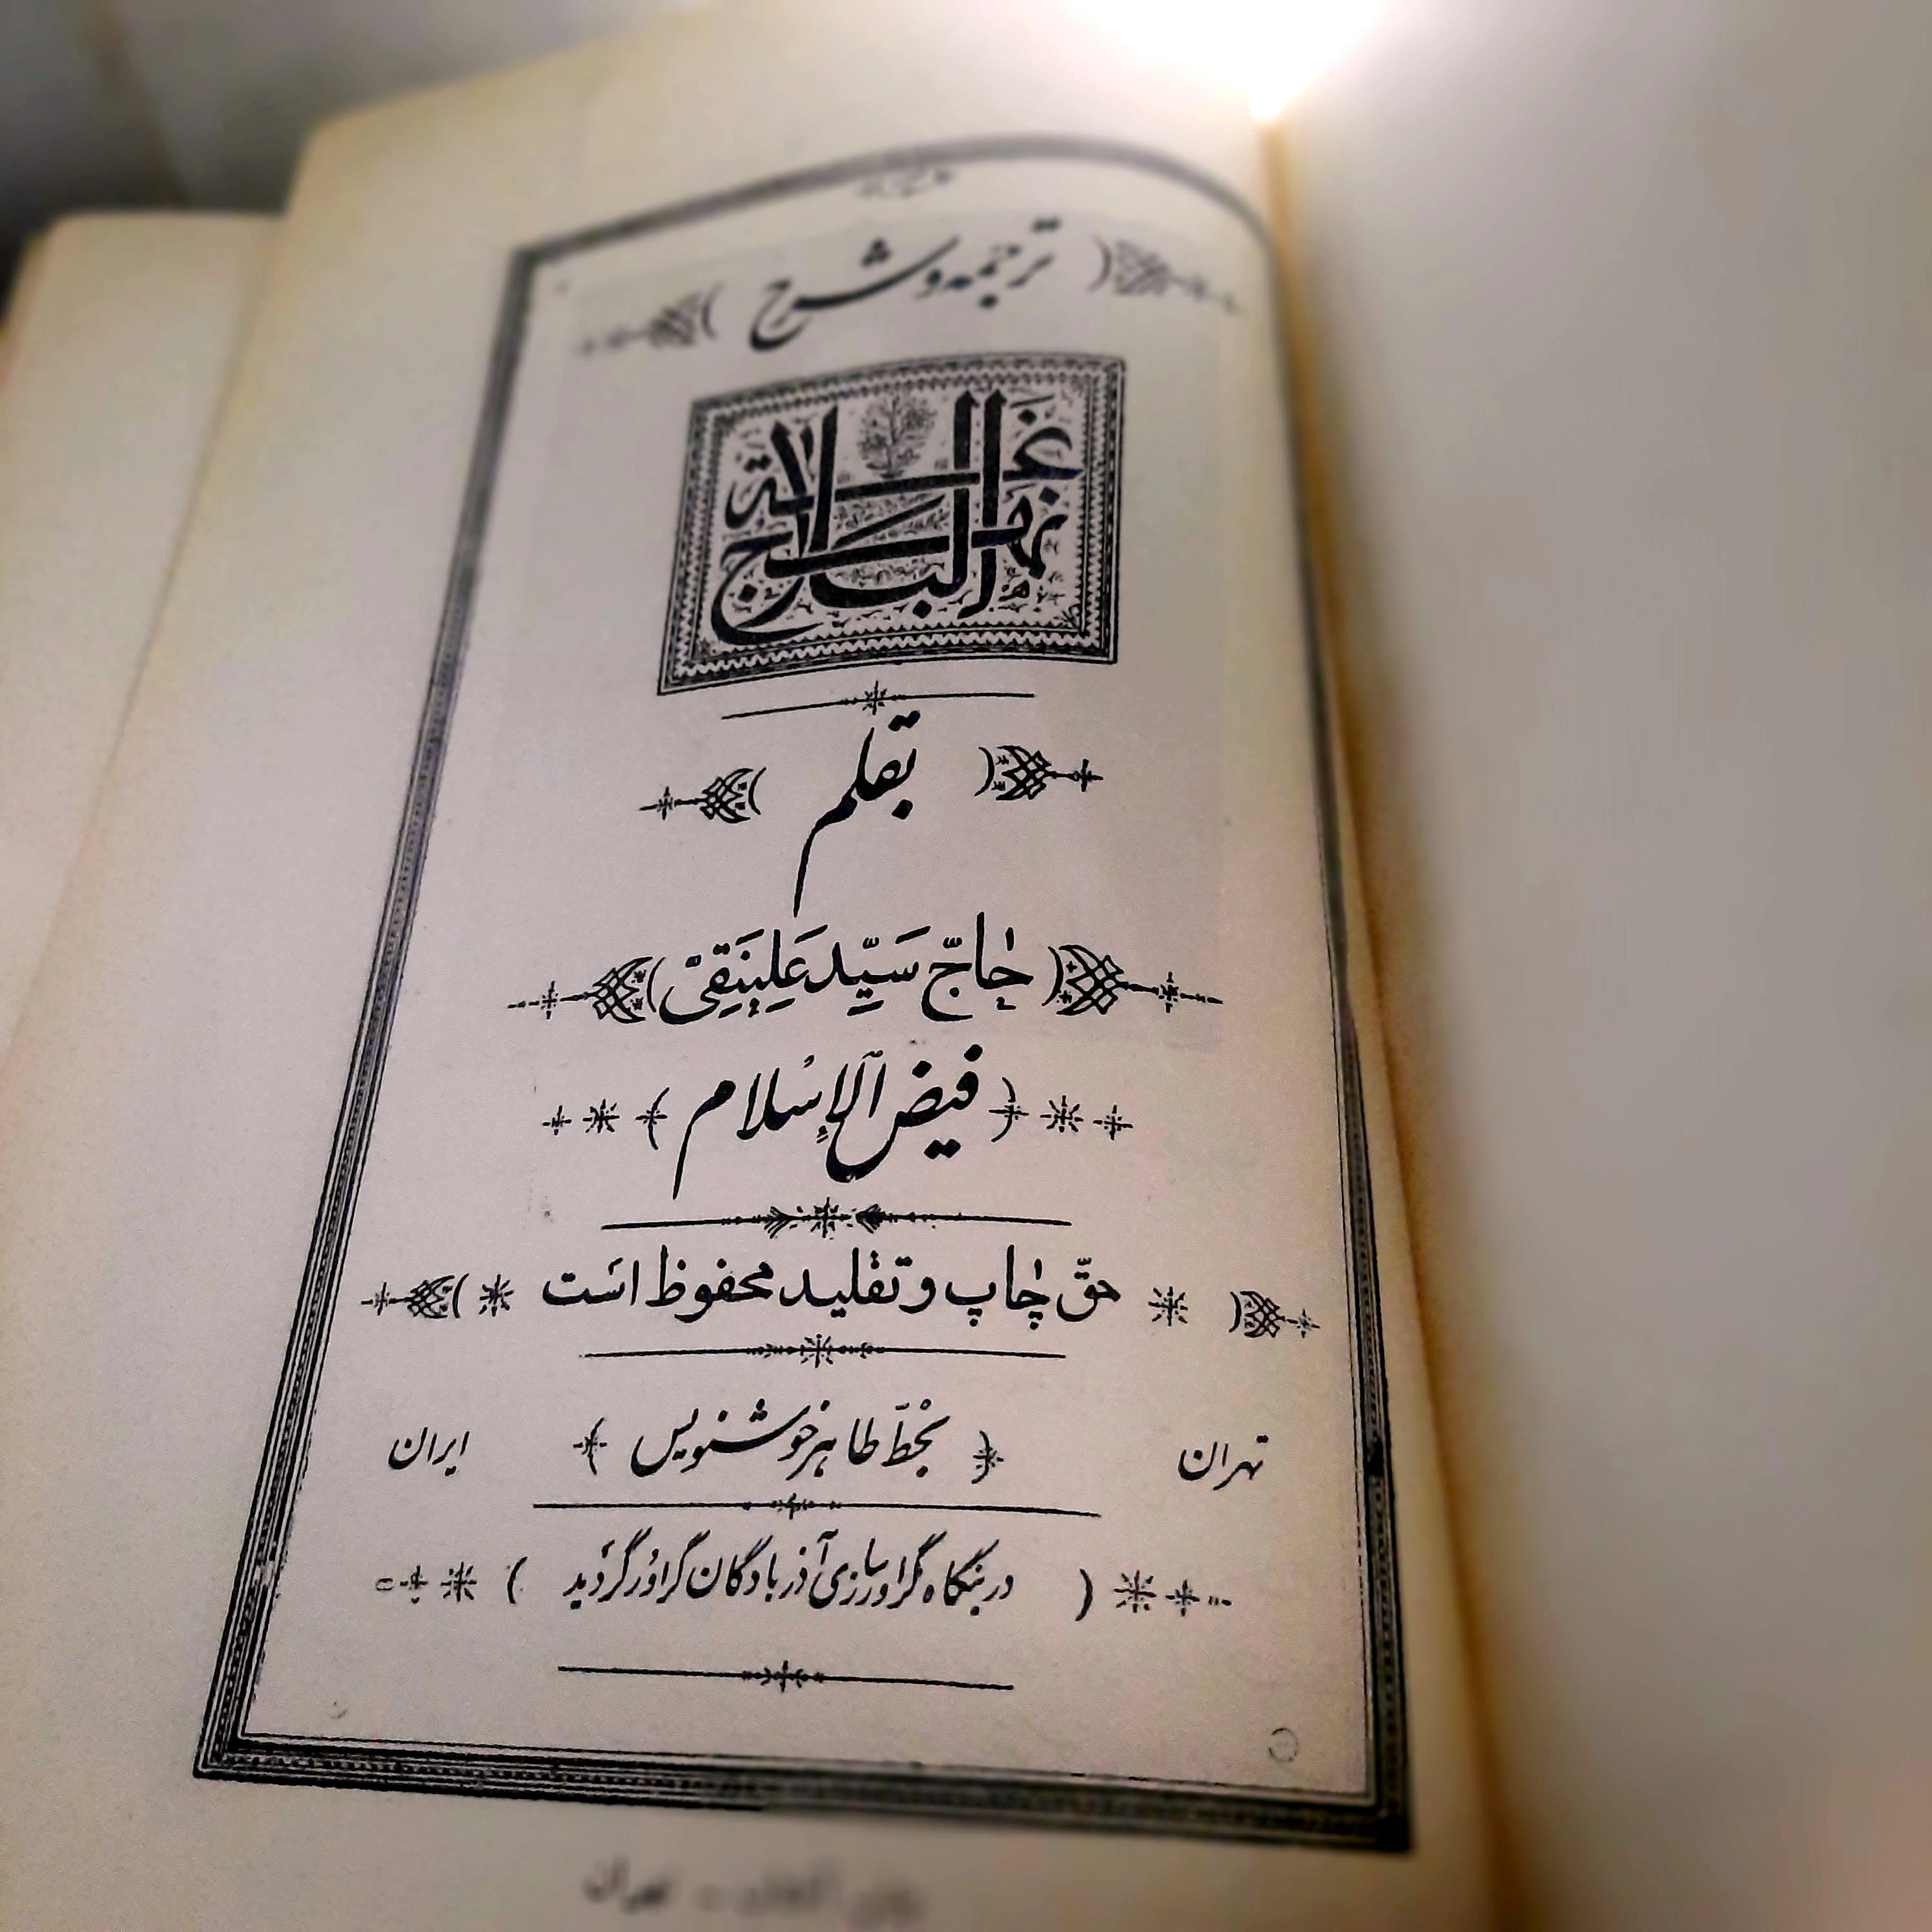 ترجمه و شرح
نهج البلاغة
بقلم
حاجّ سَیِّد عَلینَقِیْ
فیض‌الإسْلام
حقّ چاپ و تقلید محفوظ است
تهران بخطّ طاهر خوشنویس ایران
در بنگاه گراورسازی آذربادگان گراور گردید
تهران